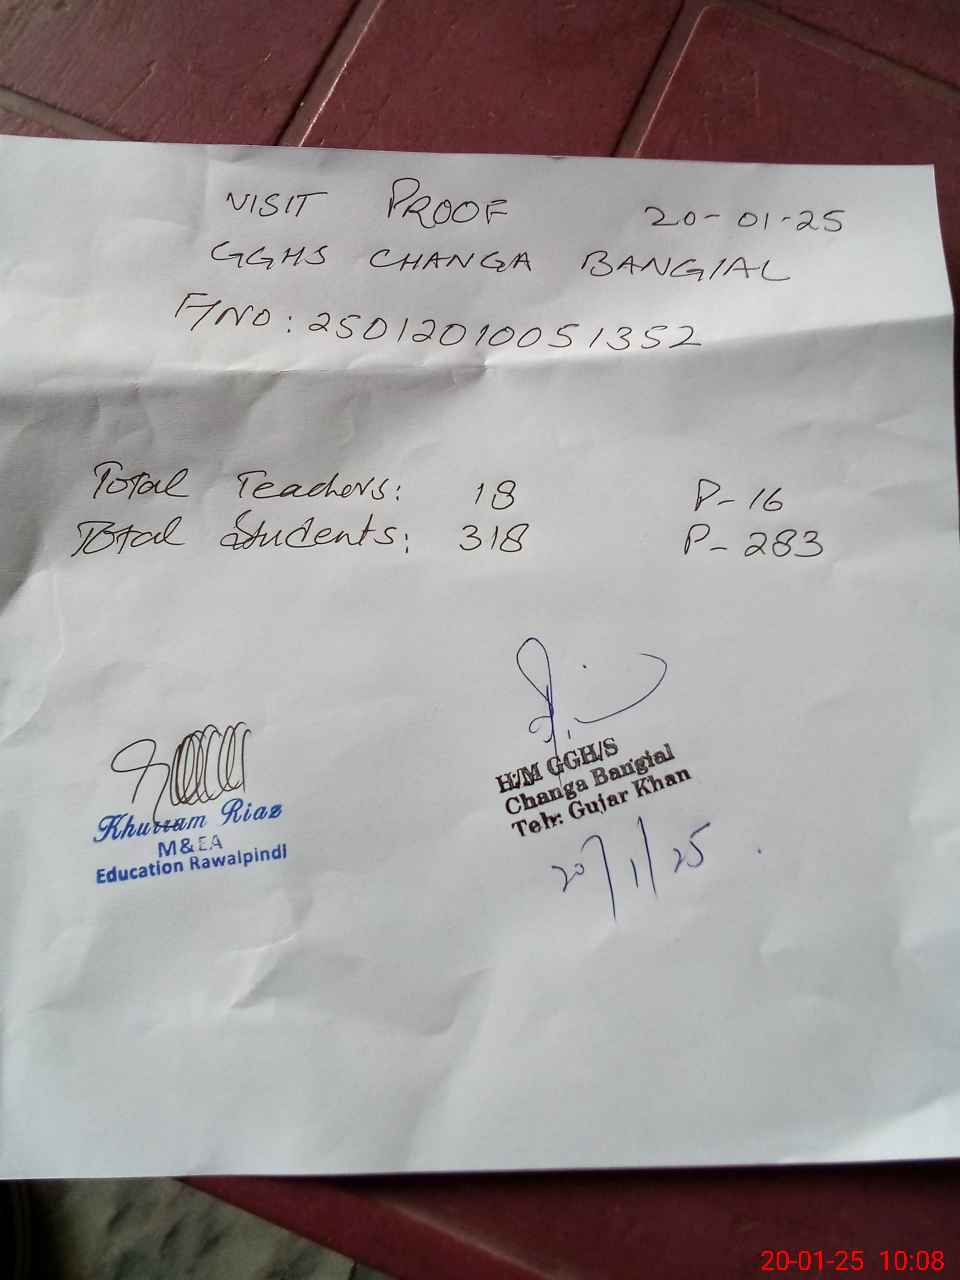 VISIT PROOF 20-01-25
GGHS CHANGA BANGIAL
F/NO: 25012010051352
Total Teachers: 18 P-16
Total Students: 318 P-283
Khurram Riaz
M&EA
Education Rawalpindi
H/M GGH/S
Changa Bangial
Teh: Gujar Khan
20/1/25
20-01-25 10:08